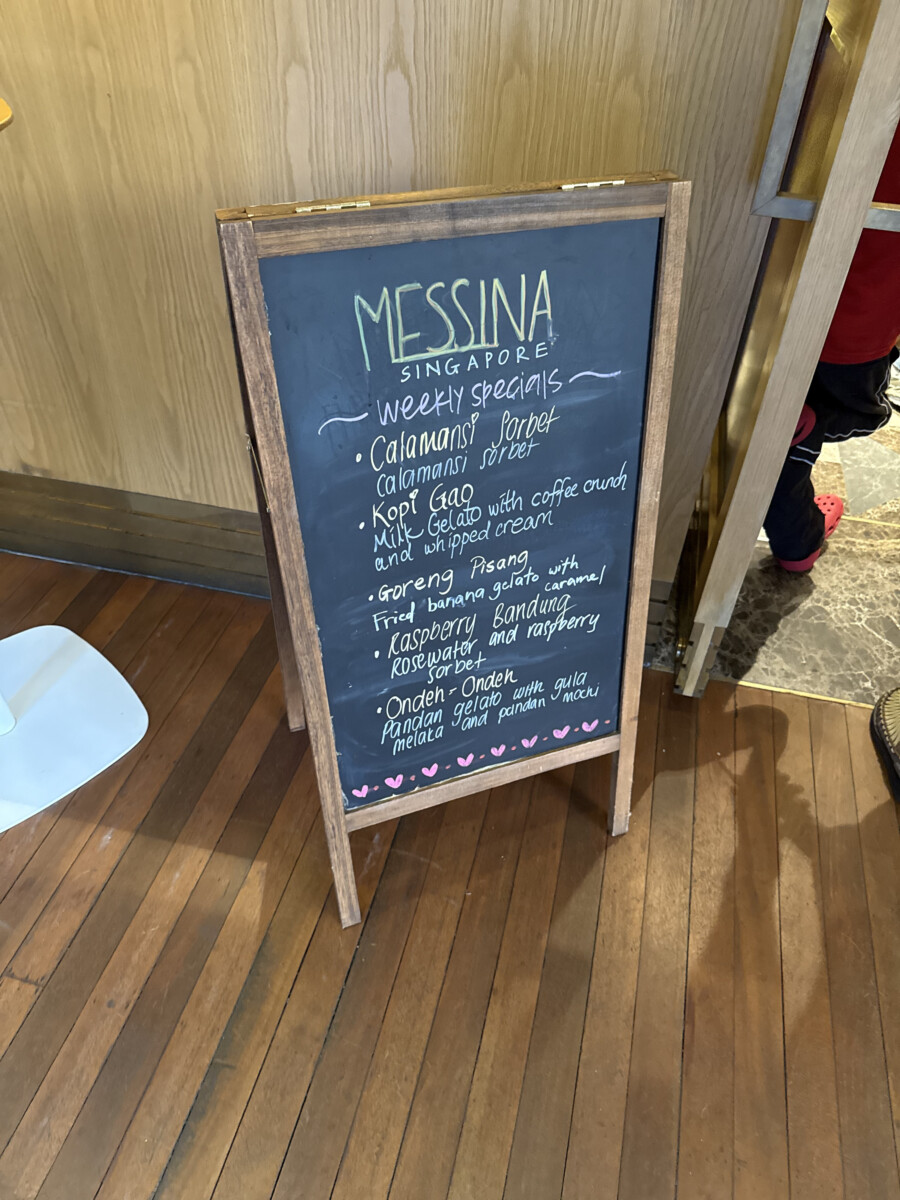 MESSINA
SINGAPORE
weekly specials
• Calamansi Sorbet
Calamansi sorbet
• Kopi Gao
Milk Gelato with coffee crunch
and whipped cream
• Goreng Pisang
Fried banana gelato with
caramel
• Raspberry Bandung
Rosewater and raspberry
sorbet
• Ondeh-Ondeh
Pandan gelato with gula
melaka and pandan mochi